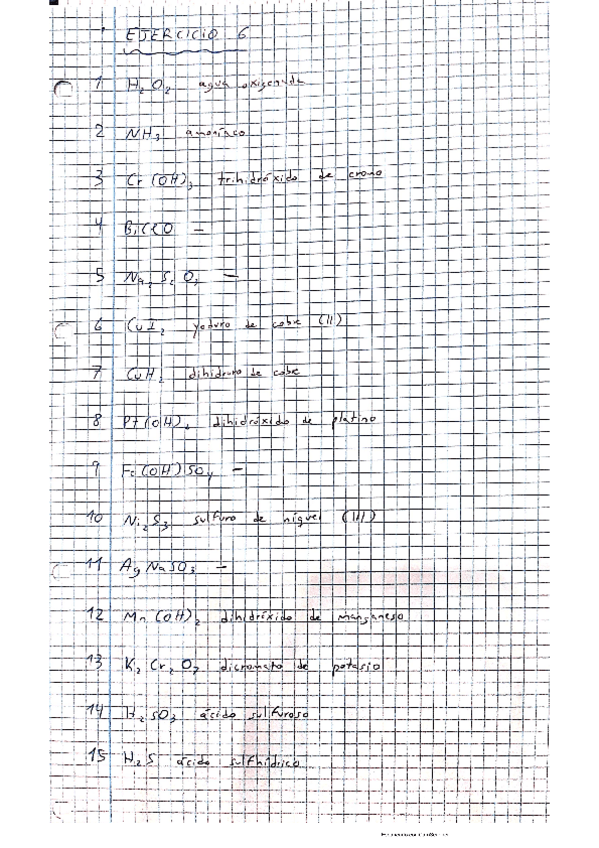 EJERCICIO 6
1 H2O2 agua oxigenada
2 NH3 amoníaco
3 Cr(OH)3 trihidróxido de cromo
4 BiClO —
5 Na2S2O3 —
6 CuI2 yoduro de cobre (II)
7 CuH2 dihidruro de cobre
8 Pt(OH)2 dihidróxido de platino
9 Fe(OH)SO4 —
10 Ni2S3 sulfuro de níquel (III)
11 AgNaSO3 —
12 Mn(OH)2 dihidróxido de manganeso
13 K2Cr2O7 dicromato de potasio
14 H2SO3 ácido sulfuroso
15 H2S ácido sulfhídrico